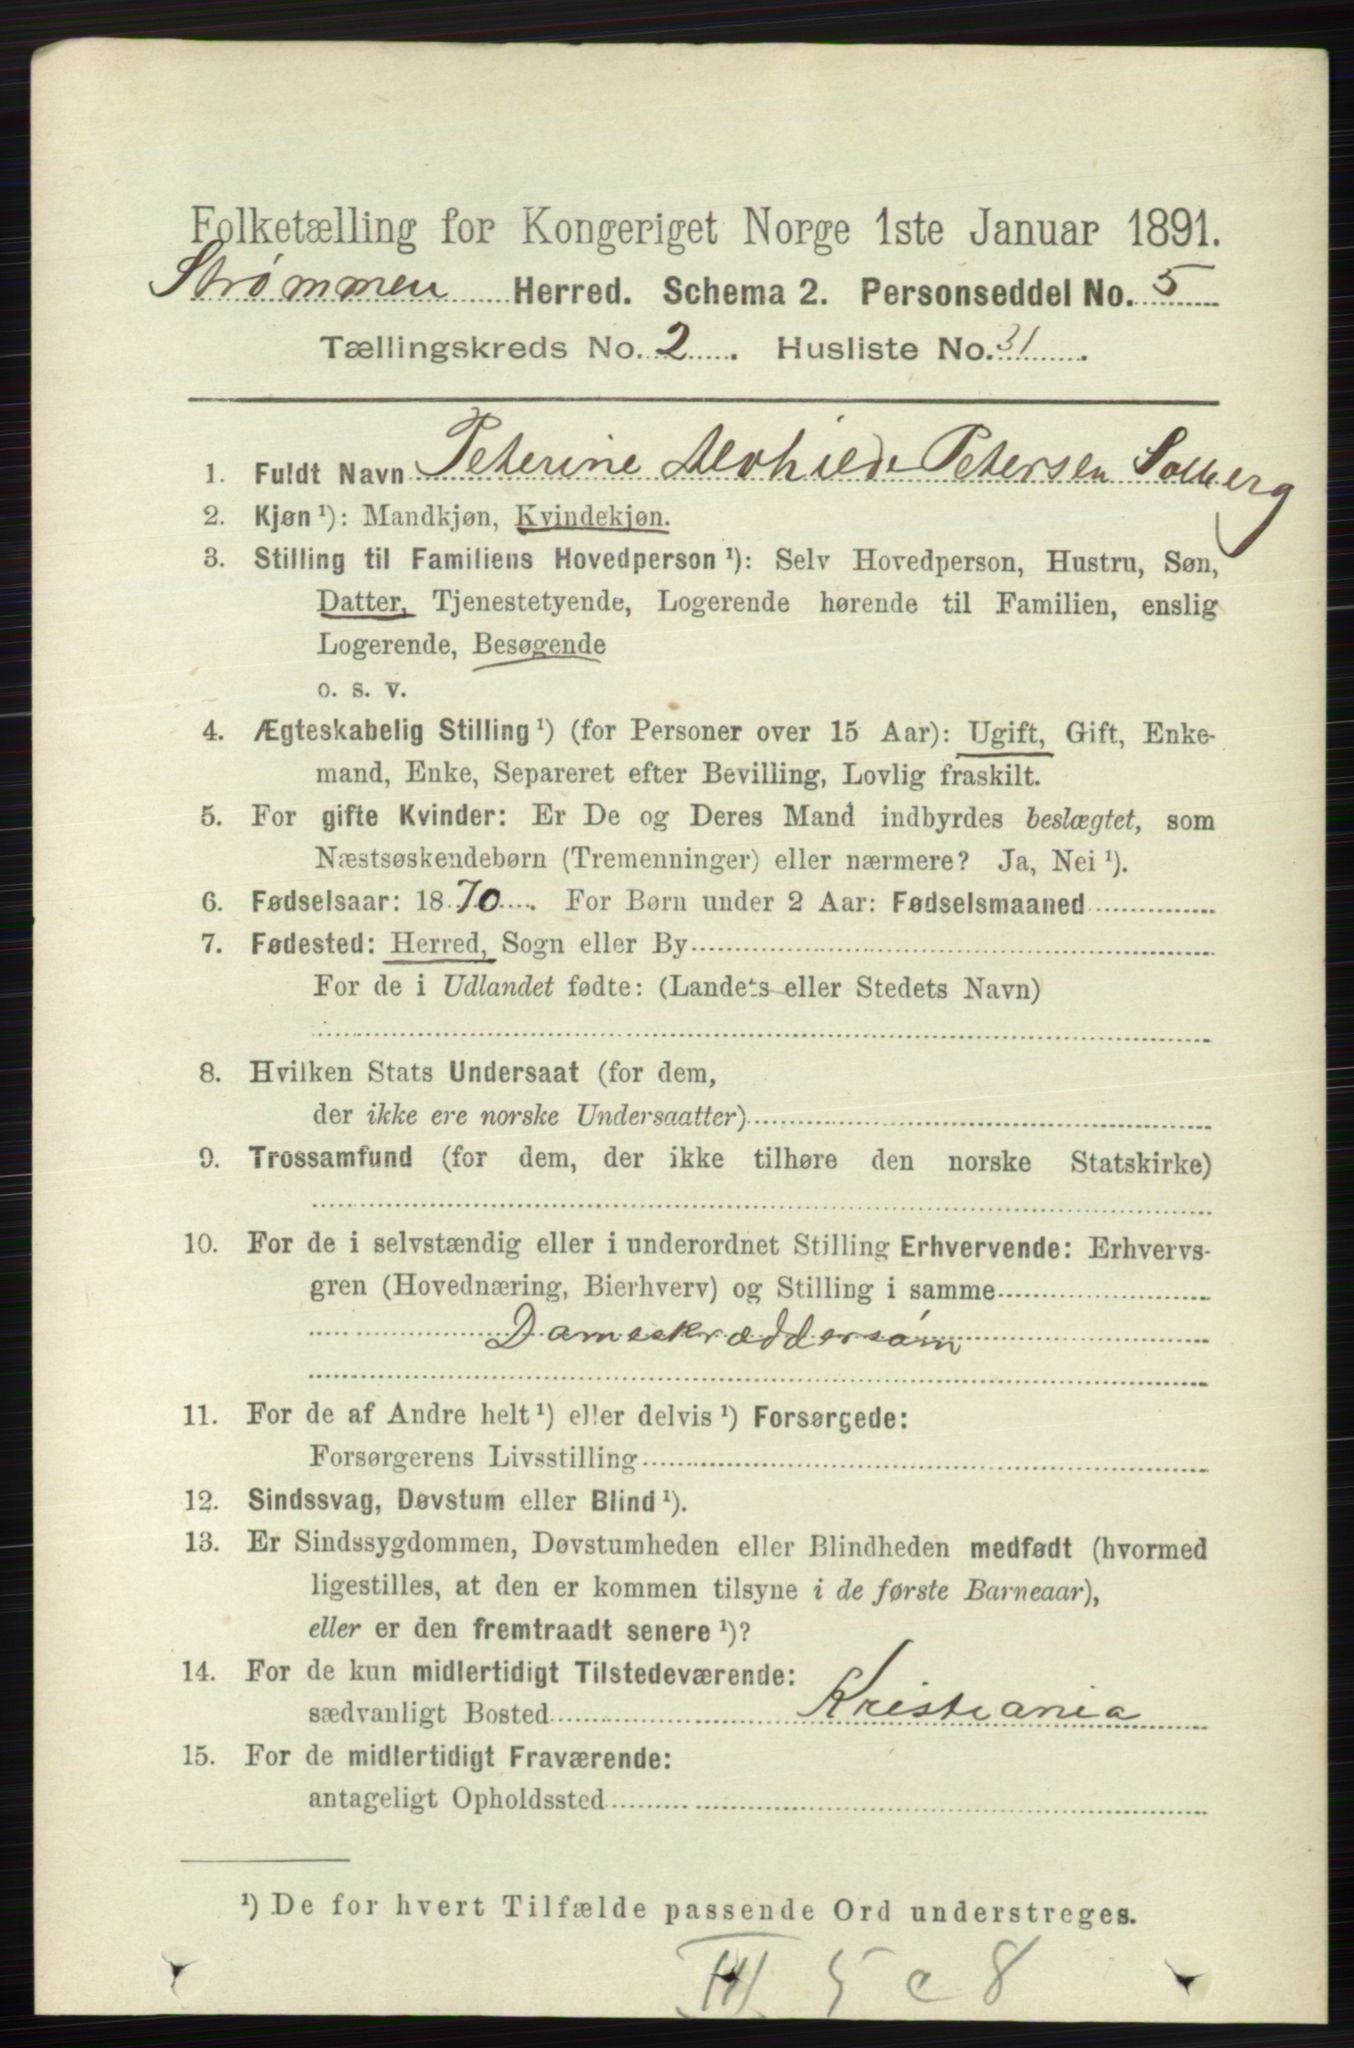 Folketælling for Kongeriget Norge 1ste Januar 1891.
Strømmen Herred. Schema 2. Personseddel No. 5
Tællingskreds No. 2. Husliste No. 31.
1. Fuldt Navn Peterine Petersen Solberg
2. Kjøn ¹): Mandkjøn, Kvindekjøn.
3. Stilling til Familiens Hovedperson ¹): Selv Hovedperson, Hustru, Søn,
Datter, Tjenestetyende, Logerende hørende til Familien, enslig
Logerende, Besøgende
o. s. v.
4. Ægteskabelig Stilling ¹) (for Personer over 15 Aar): Ugift, Gift, Enke-
mand, Enke, Separeret efter Bevilling, Lovlig fraskilt.
5. For gifte Kvinder: Er De og Deres Mand indbyrdes beslægtet, som
Næstsøskendebørn (Tremenninger) eller nærmere? Ja, Nei ¹).
6. Fødselsaar: 1870. For Børn under 2 Aar: Fødselsmaaned
7. Fødested: Herred, Sogn eller By
For de i Udlandet fødte: (Landets eller Stedets Navn)
8. Hvilken Stats Undersaat (for dem,
der ikke ere norske Undersaatter)
9. Trossamfund (for dem, der ikke tilhøre den norske Statskirke)
10. For de i selvstændig eller i underordnet Stilling Erhvervende: Erhvervs-
gren (Hovednæring, Bierhverv) og Stilling i samme
Dameskræddersøm
11. For de af Andre helt ¹) eller delvis ¹) Forsørgede:
Forsørgerens Livsstilling
12. Sindssvag, Døvstum eller Blind ¹).
13. Er Sindssygdommen, Døvstumheden eller Blindheden medfødt (hvormed
ligestilles, at den er kommen tilsyne i de første Barneaar),
eller er den fremtraadt senere ¹)?
14. For de kun midlertidigt Tilstedeværende:
sædvanligt Bosted Kristiania
15. For de midlertidigt Fraværende:
antageligt Opholdssted
¹) De for hvert Tilfælde passende Ord understreges.
III 5 c 8